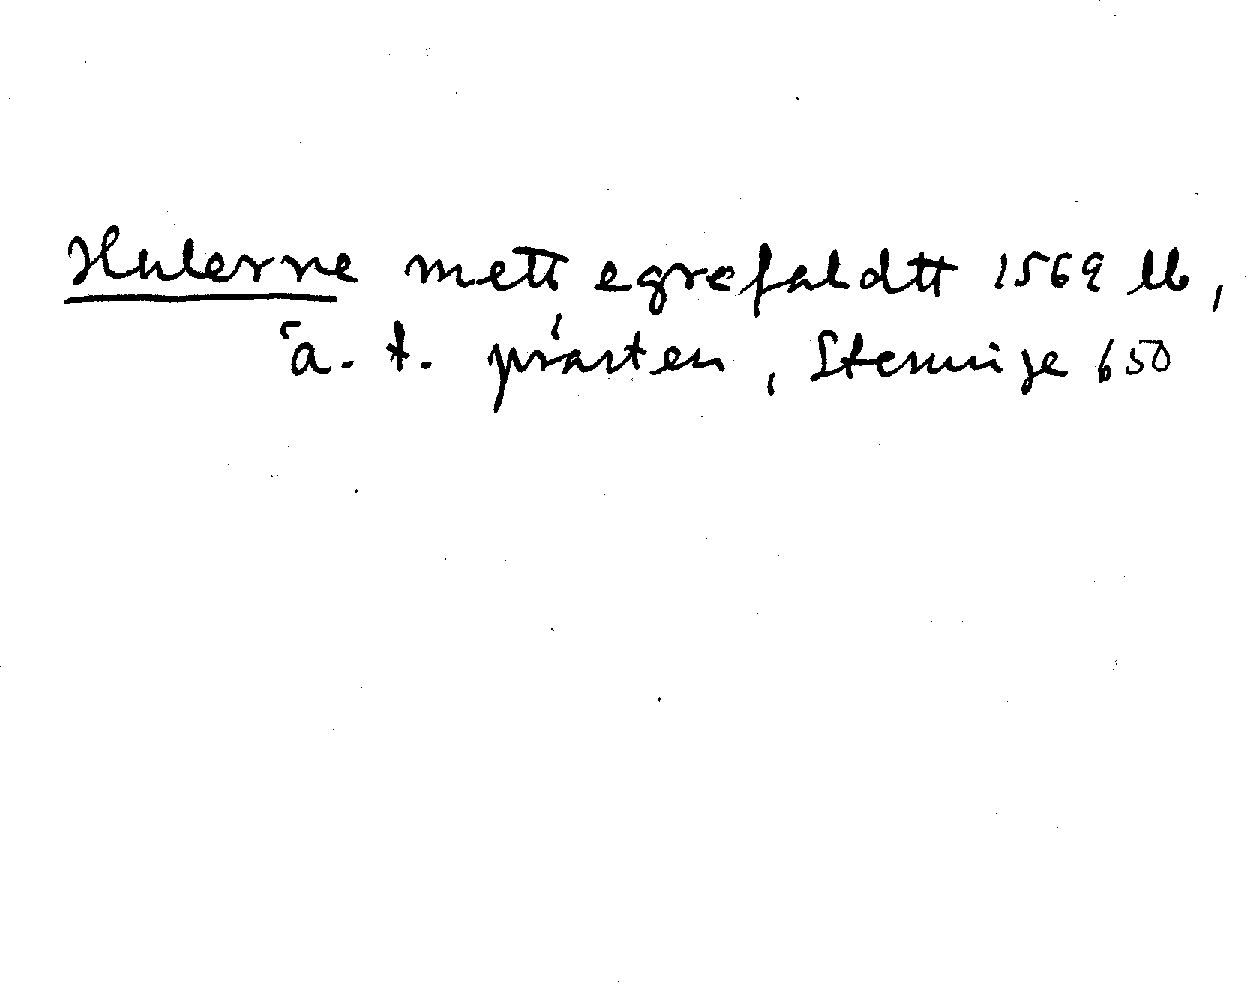 Hulerne mett egrefaldtt 1569 lb,
ä. t. prästen, Steninge 650